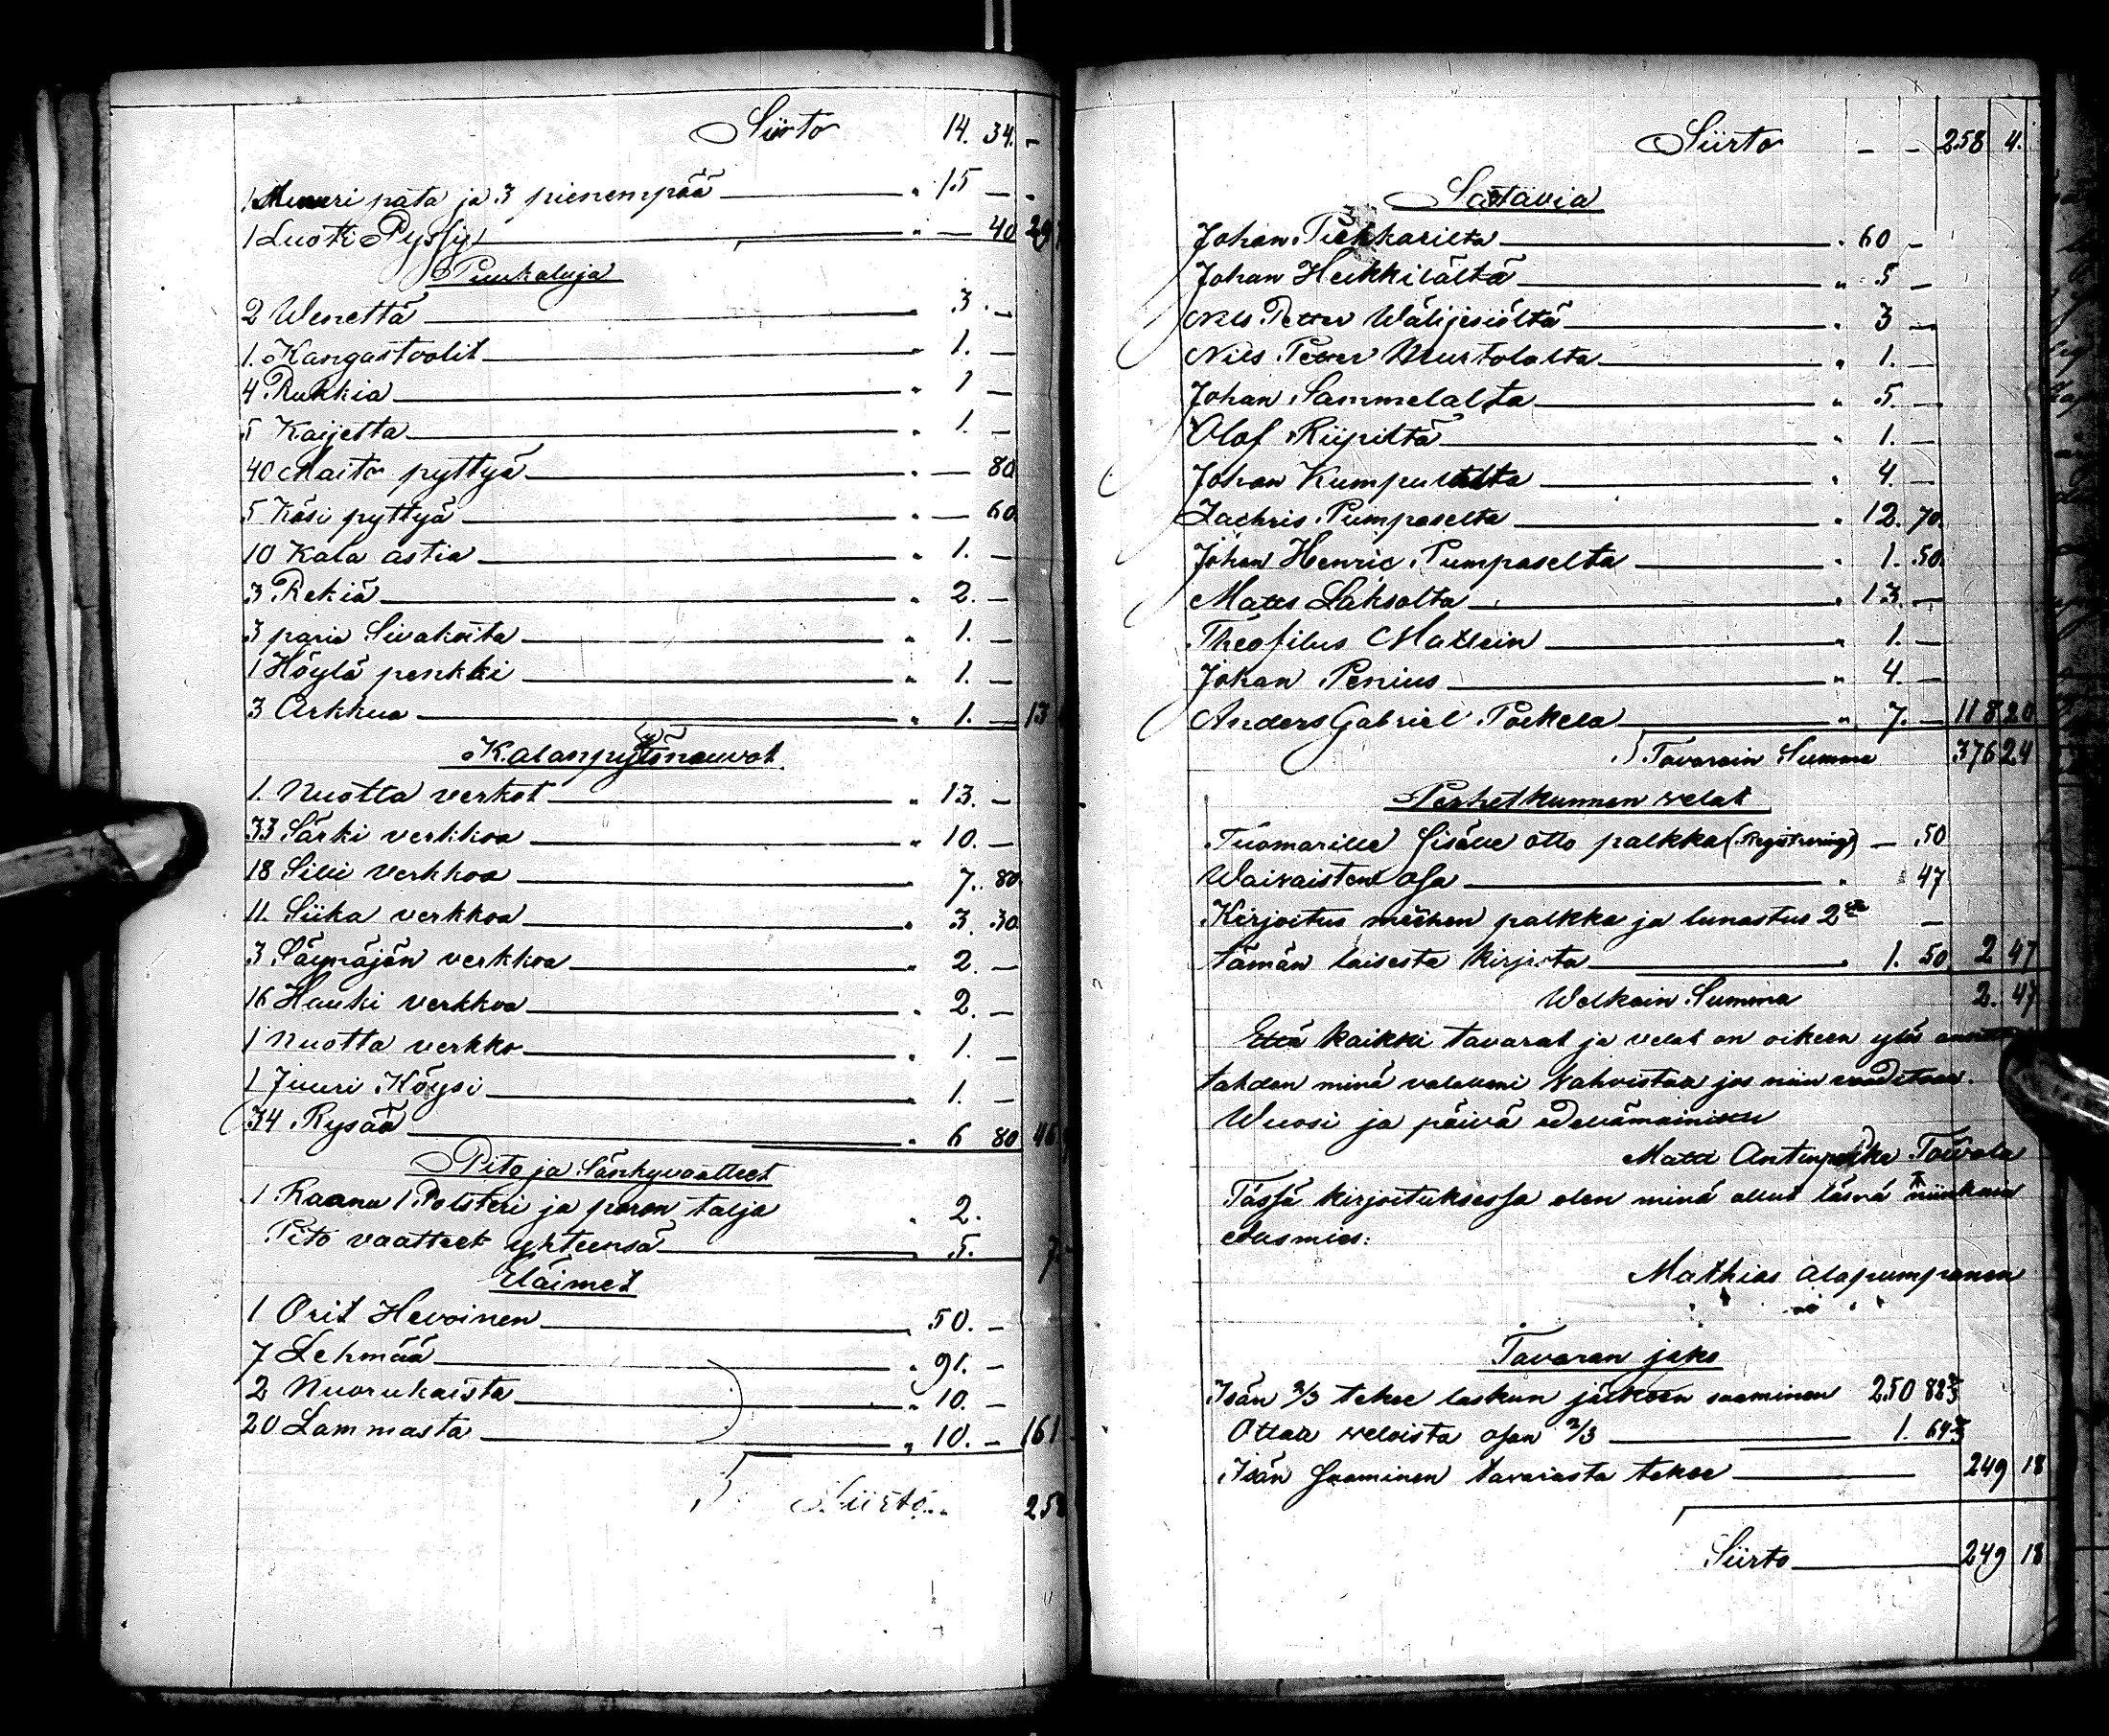 Siirto 14. 34. -
1 Muuri pata ja 3 pienempää " 15 -
1 Luoti Pyssy " - 40 29
Puukaluja
2 Wenettä " 3. -
1. Kangastoolit " 1. -
4 Rukkia " 1 -
5 Kaijetta " 1. -
40 Maito pyttyä " - 80
5 Käsi pyttyä " - 60.
10 Kala astia " 1. -
3 Rekiä " 2. -
3 paria Sivakoita " 1. -
1 Höylä penkki " 1. -
3 Arkkua " 1. - 13
Kalanpytöneuvot
1. Nuotta verkot " 13. -
33 Särki verkkoa " 10. -
18 Silii verkkoa " 7. 80
11. Siika verkkoa " 3. 30
3 Säynäjän verkkoa " 2. -
16 Hauki verkkoa " 2. -
1 Nuotta verkko " 1. -
1 Juuri Köysi " 1. -
34 Rysää " 6 80 46
Pito ja Sänkyvaatteet
1 Raanu 1 Polsteri ja poron talja " 2.
Pito vaatteet yhteensä " 5. 7
Eläimet
1 Orit Hevoinen " 50. -
7 Lehmää " 91. -
2 Nuorukaista " 10. -
20 Lammasta " 10. - 161
Siirto 258
Siirto - - 258 4.
Saatavia
Johan Pirkkarilta " 60 -
Johan Heikkilältä " 5 -
Nils Petter Wälijesiöltä " 3 -
Nils Petter Murtolalta " 1. -
Johan Sammelalta " 5. -
Olof Riipiltä " 1. -
Johan Kumpulalta " 4. -
Zachris Pumpaselta " 12. 70.
Johan Henric Pumpaselta " 1. 50.
Matts Laksolta " 13. -
Theofilus Mattein " 1. -
Johan Penius " 4. -
Anders Gabriel Poikela " 7. - 118 20
Tavarain Summa 376 24
Perhetkunnan velat
Tuomarille Sisälle otto palkka (Registrering) - 50
Waivaisten osa " 47
Kirjoitus miehen palkka ja lunastus 2 -
tämän laisesta kirjasta " 1. 50 2 47
Welkain Summa 2. 47
Että kaikki tavarat ja velat on oikeen ylös
tahdon minä valallani vahvistaa jos niin vaaditaan.
Wuosi ja päivä edellämainittu
Matti Toivola
Tässä kirjoituksessa olen minä ollut läsnä niinkuin
Mathias Alapumpanen
Tavaran jako
Isän 2/3 tekee laskun jälkeen saaminen 250 82 2/3
Ottaa veloista osan 2/3 1. 64 2/3
Isän Saaminen tavarasta tekee 249 18
Siirto 249 18